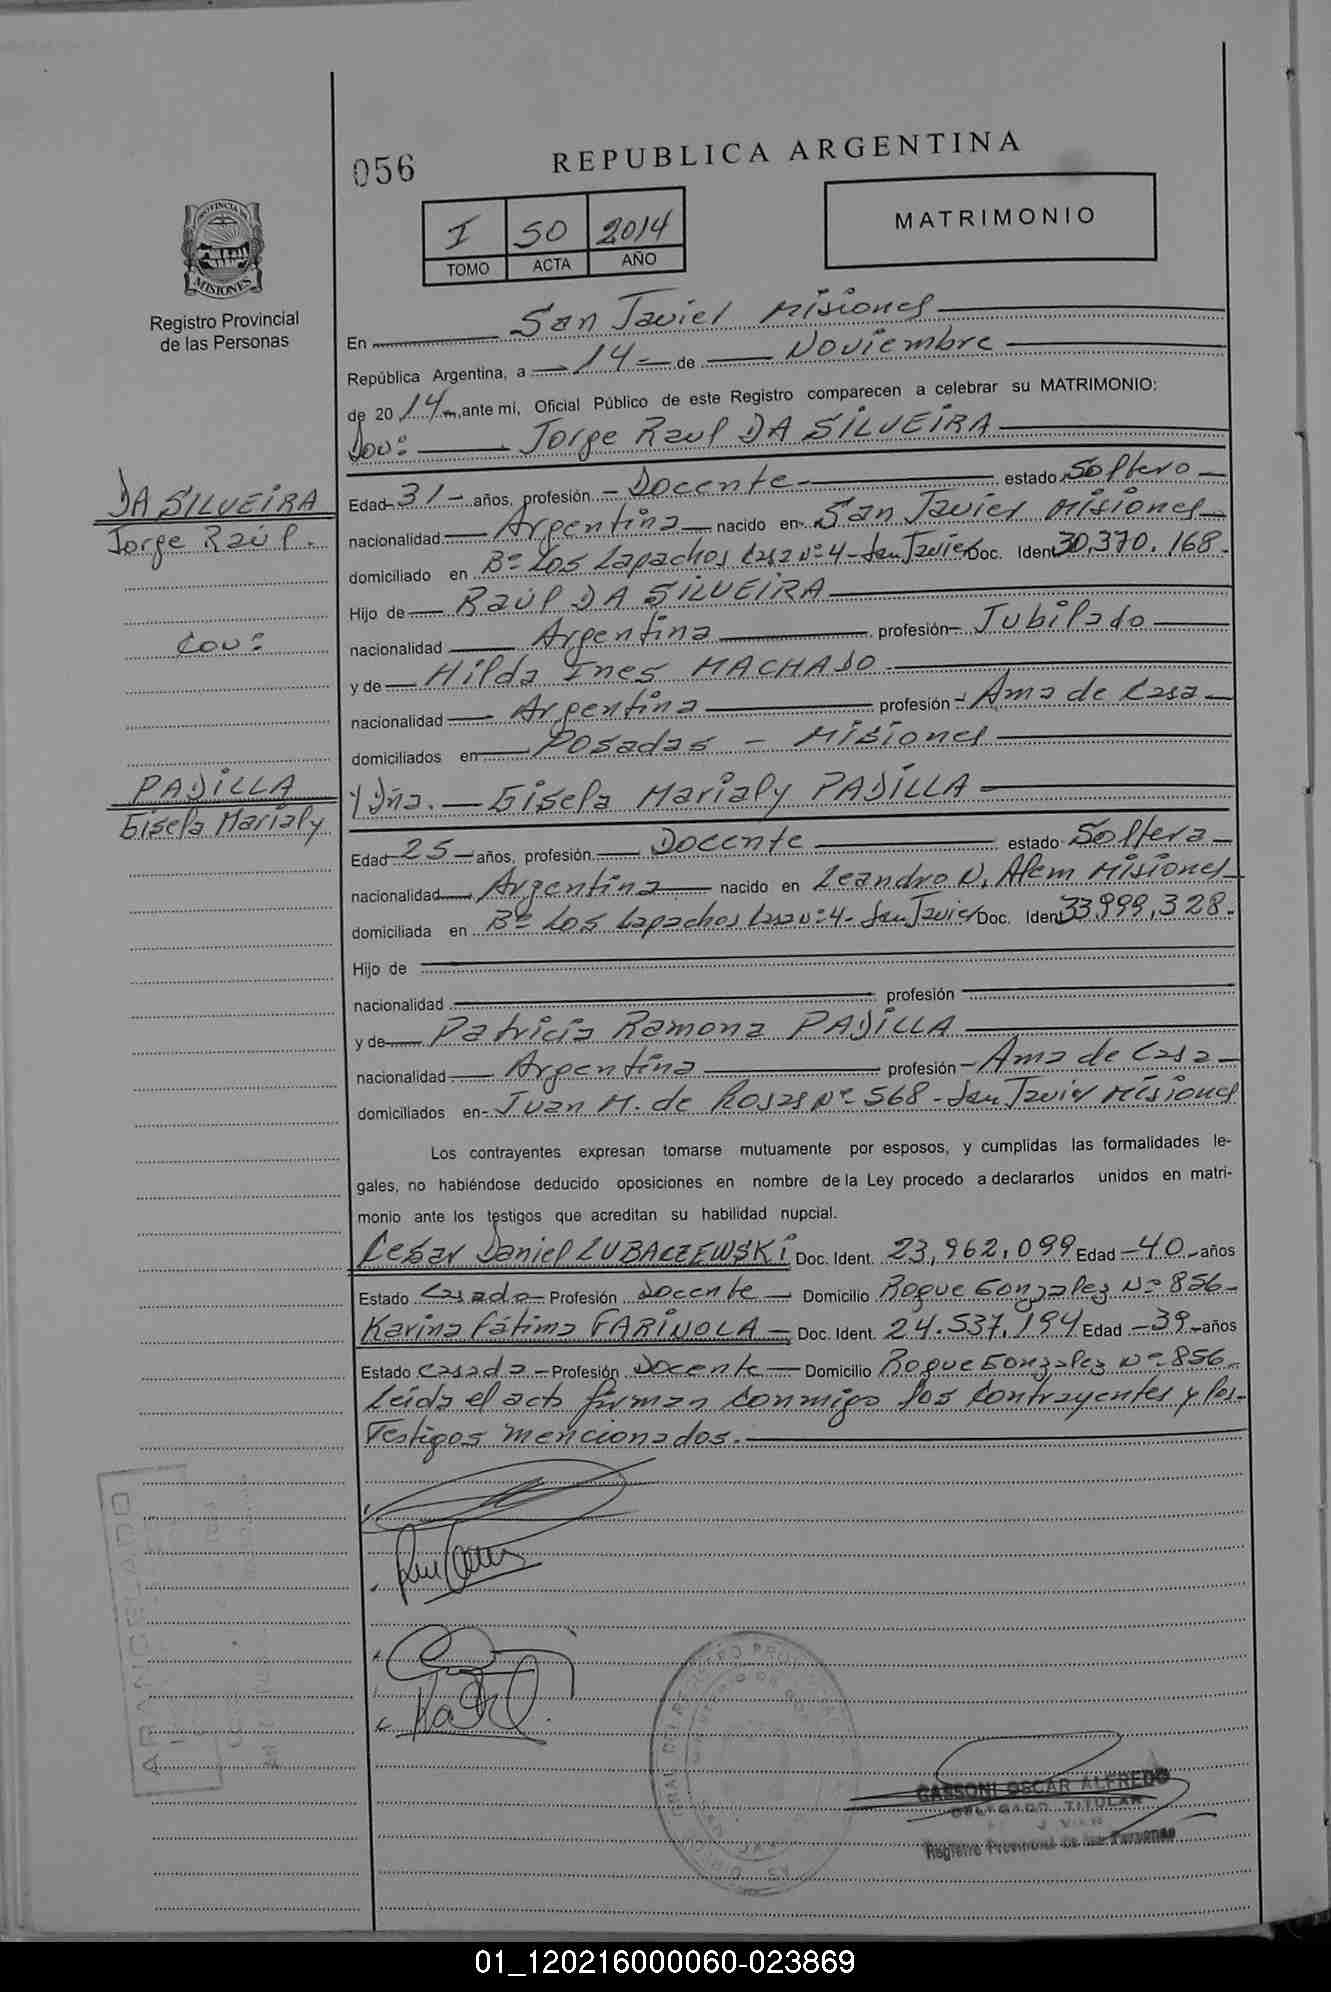 056
REPUBLICA ARGENTINA
I 50 2014
TOMO ACTA AÑO
MATRIMONIO
PROVINCIA DE
MISIONES
Registro Provincial
de las Personas
En San Javier Misiones
República Argentina, a 14 de Noviembre
de 2014, ante mi, Oficial Público de este Registro comparecen a celebrar su MATRIMONIO:
Don: Jorge Raul DA SILVEIRA
DA SILVEIRA
Jorge Raúl.
Con:
PADILLA
Gisela Marialy
Edad 31 años, profesión Docente estado Soltero
nacionalidad Argentina nacido en San Javier Misiones
domiciliado en Bº Los Lapachos Casa Nº 4 - San Javier Doc. Ident 30.370.168.
Hijo de Raúl DA SILVEIRA
nacionalidad Argentina profesión Jubilado
y de Hilda Ines MACHADO
nacionalidad Argentina profesión Ama de Casa
domiciliados en Posadas - Misiones
Y Dña. Gisela Marialy PADILLA
Edad 25 años, profesión Docente estado Soltera
nacionalidad Argentina nacido en Leandro N. Alem Misiones
domiciliada en Bº Los Lapachos Casa Nº 4 - San Javier Doc. Ident 33.999.328.
Hijo de
nacionalidad profesión
y de Patricia Ramona PADILLA
nacionalidad Argentina profesión Ama de Casa
domiciliados en Juan M. de Rosas Nº 568 - San Javier Misiones
Los contrayentes expresan tomarse mutuamente por esposos, y cumplidas las formalidades le-
gales, no habiéndose deducido oposiciones en nombre de la Ley procedo a declararlos unidos en matri-
monio ante los testigos que acreditan su habilidad nupcial.
Cesar Daniel LUBACZEWSKI Doc. Ident. 23,962,099 Edad 40 años
Estado Casado Profesión Docente Domicilio Roque Gonzalez Nº 856
Karina Fátima FARINOLA Doc. Ident. 24.537.194 Edad 39 años
Estado Casada Profesión Docente Domicilio Roque Gonzalez Nº 856
Leída el acta firman conmigo los Contrayentes y los
Testigos mencionados.
ARANCELADO
GASSONI OSCAR ALFREDO
DELEGADO TITULAR
Registro Provincial de las Personas
01_120216000060-023869